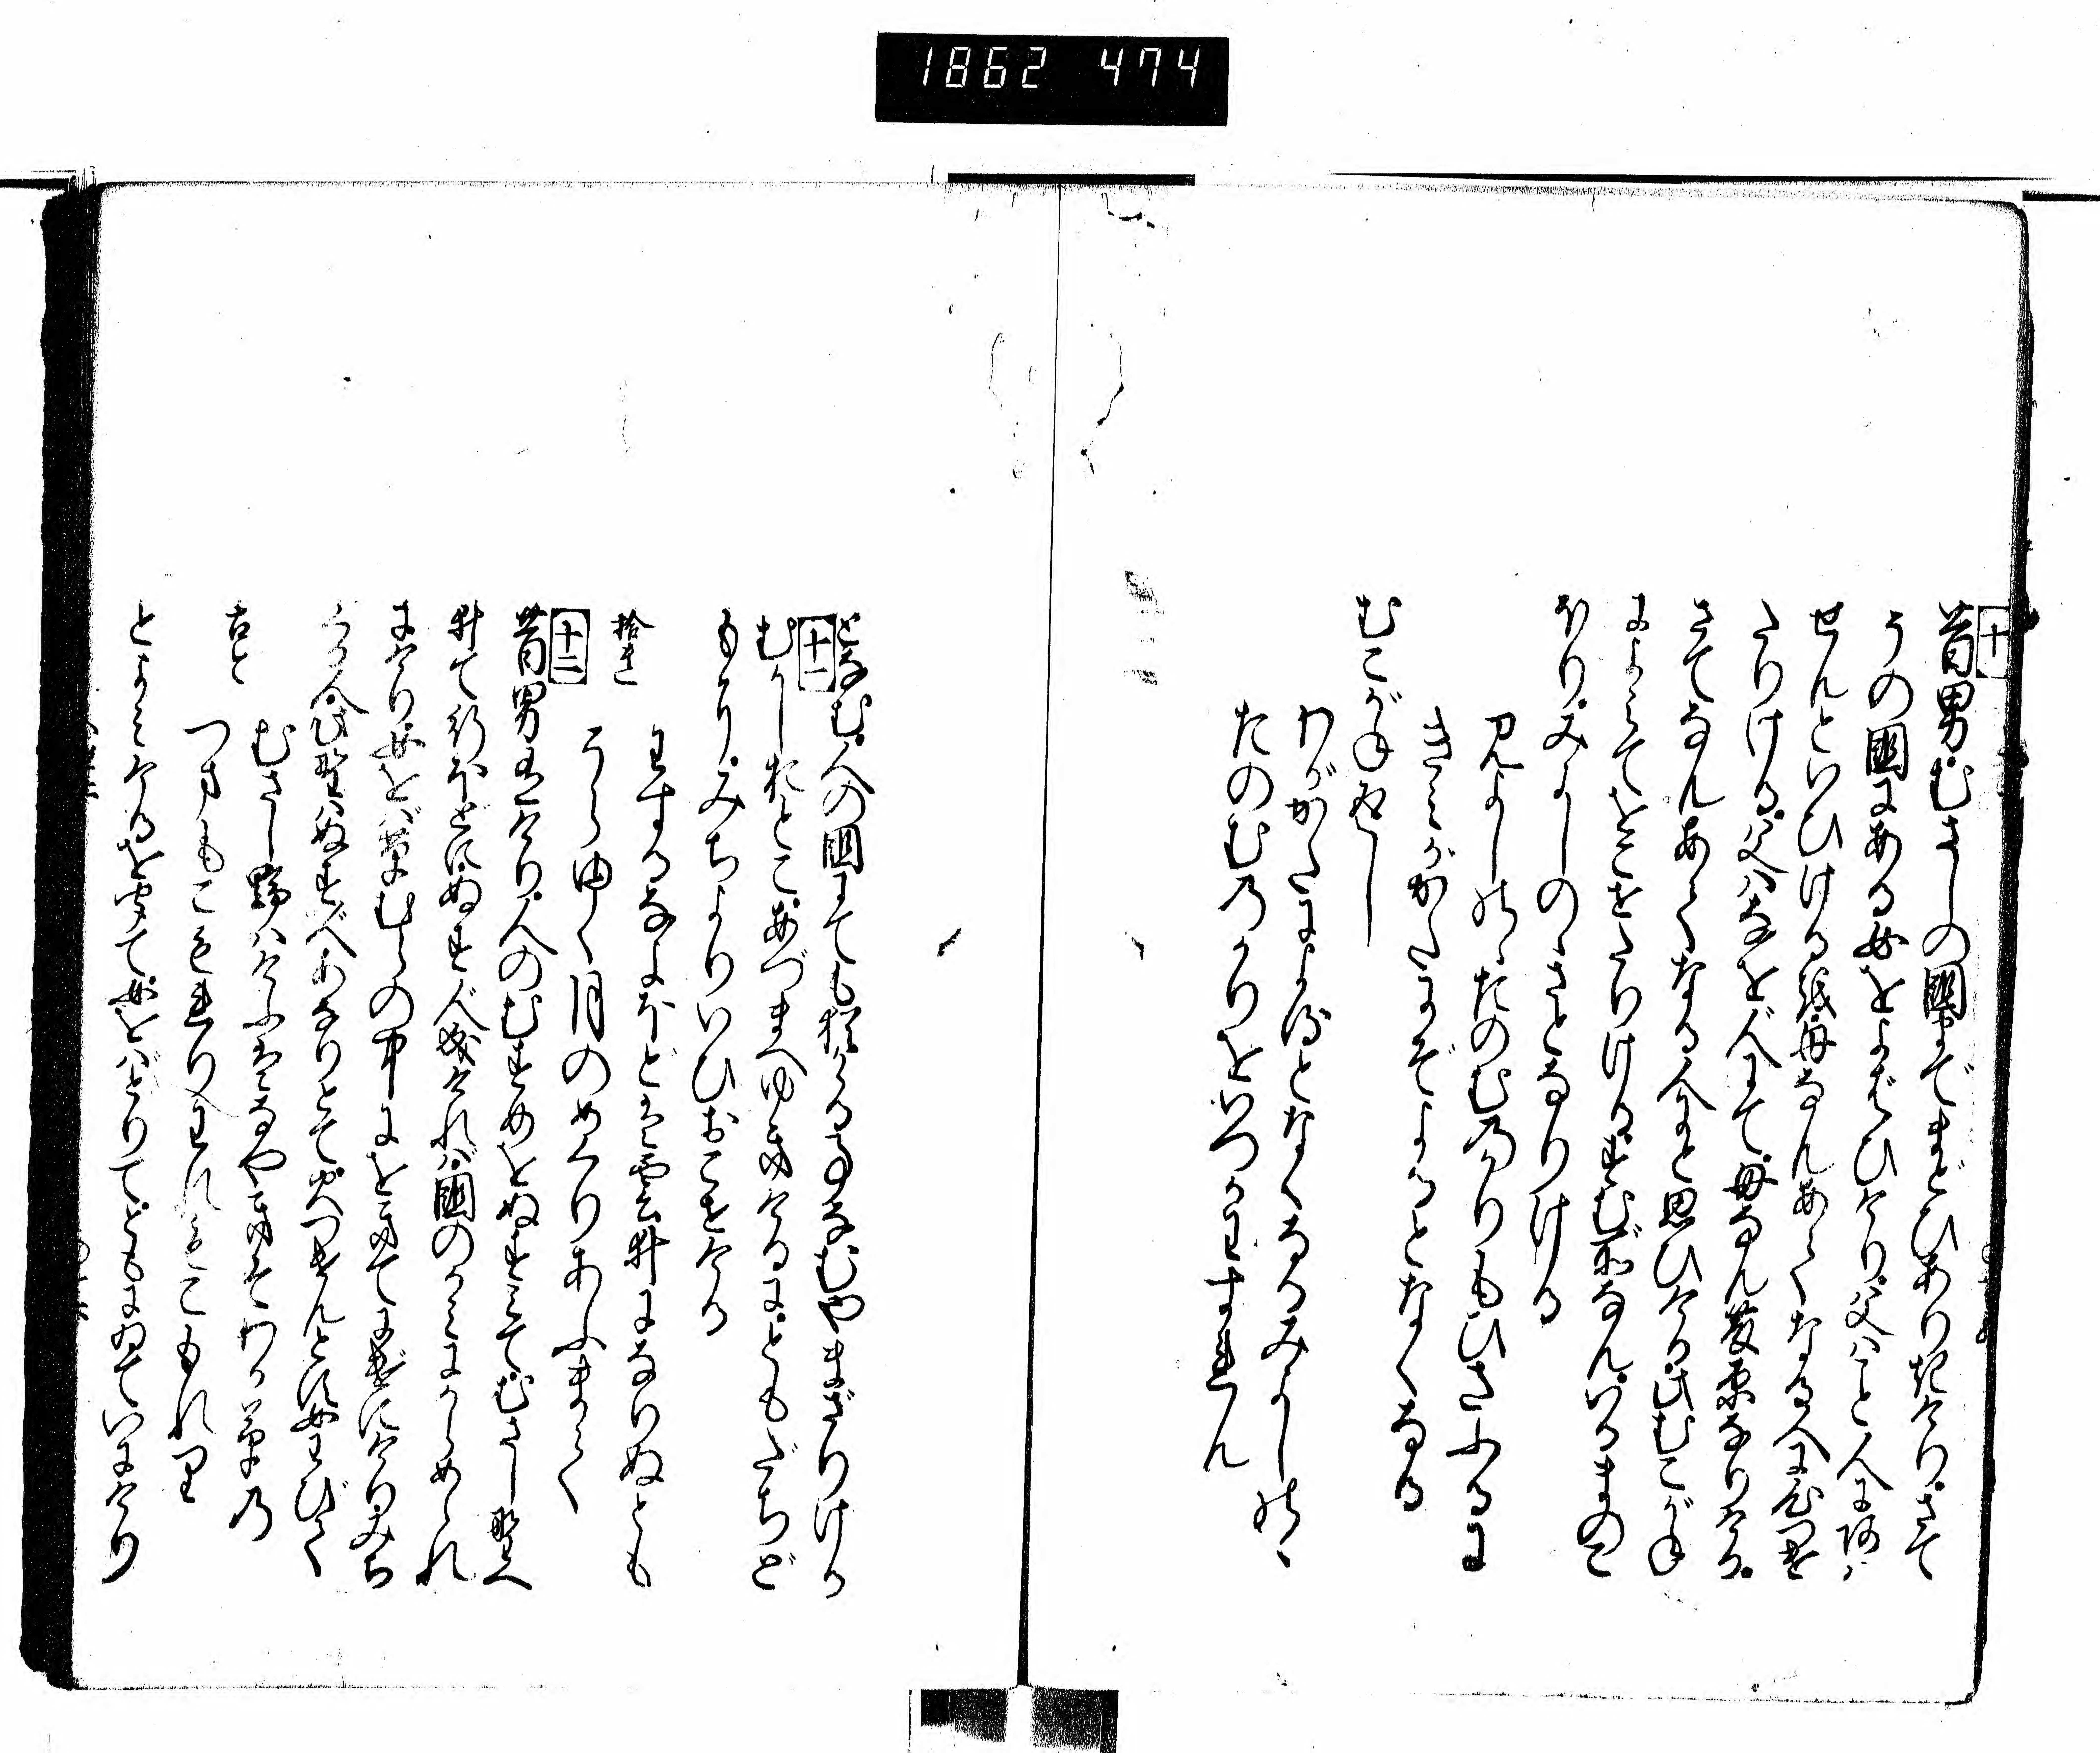 1862 474
十
昔男むさしの國までまどひありきけりさて
うの國にある女をよばひけり父はこと人にあは
せんといひける越母なんあてなる人に心つけ
たりける父はなを人にて母なん藤原なりける
さてなんあてなる人にと思ひける此むこがね
によみてをこせたりけるすむ所なんいるまのこ
ほりみよしのゝさとなりける
みよしのゝたのむのかりもひたふるに
きみがかたにぞよるとなくなる
むこがね返し
わがかたによるとなくなるみよしのゝ
たのむのかりをいつかわすれん
となむ人の國にても猶かゝる事なむやまざりける
十一
むかしおとこあづまへゆきけるにともだちど
もにみちよりいひおこせける
拾遺
わするなよほどは雲井になりぬとも
そらゆく月のめぐりあふまで
十二
昔男有けり人のむすめをぬすみてむさし野へ
井て行ほどにぬす人成ければ國のかみにからめられ
にけり女をば草むらの中にをきてにげにけりみち
くる人此野はぬす人あなりとて火つけんとす女わびて
むさし野はけふはなやきそわか草の
古今
つまもこもれり我もこもれり
とよみけるを聞て女をばとりてともにゐていにけり